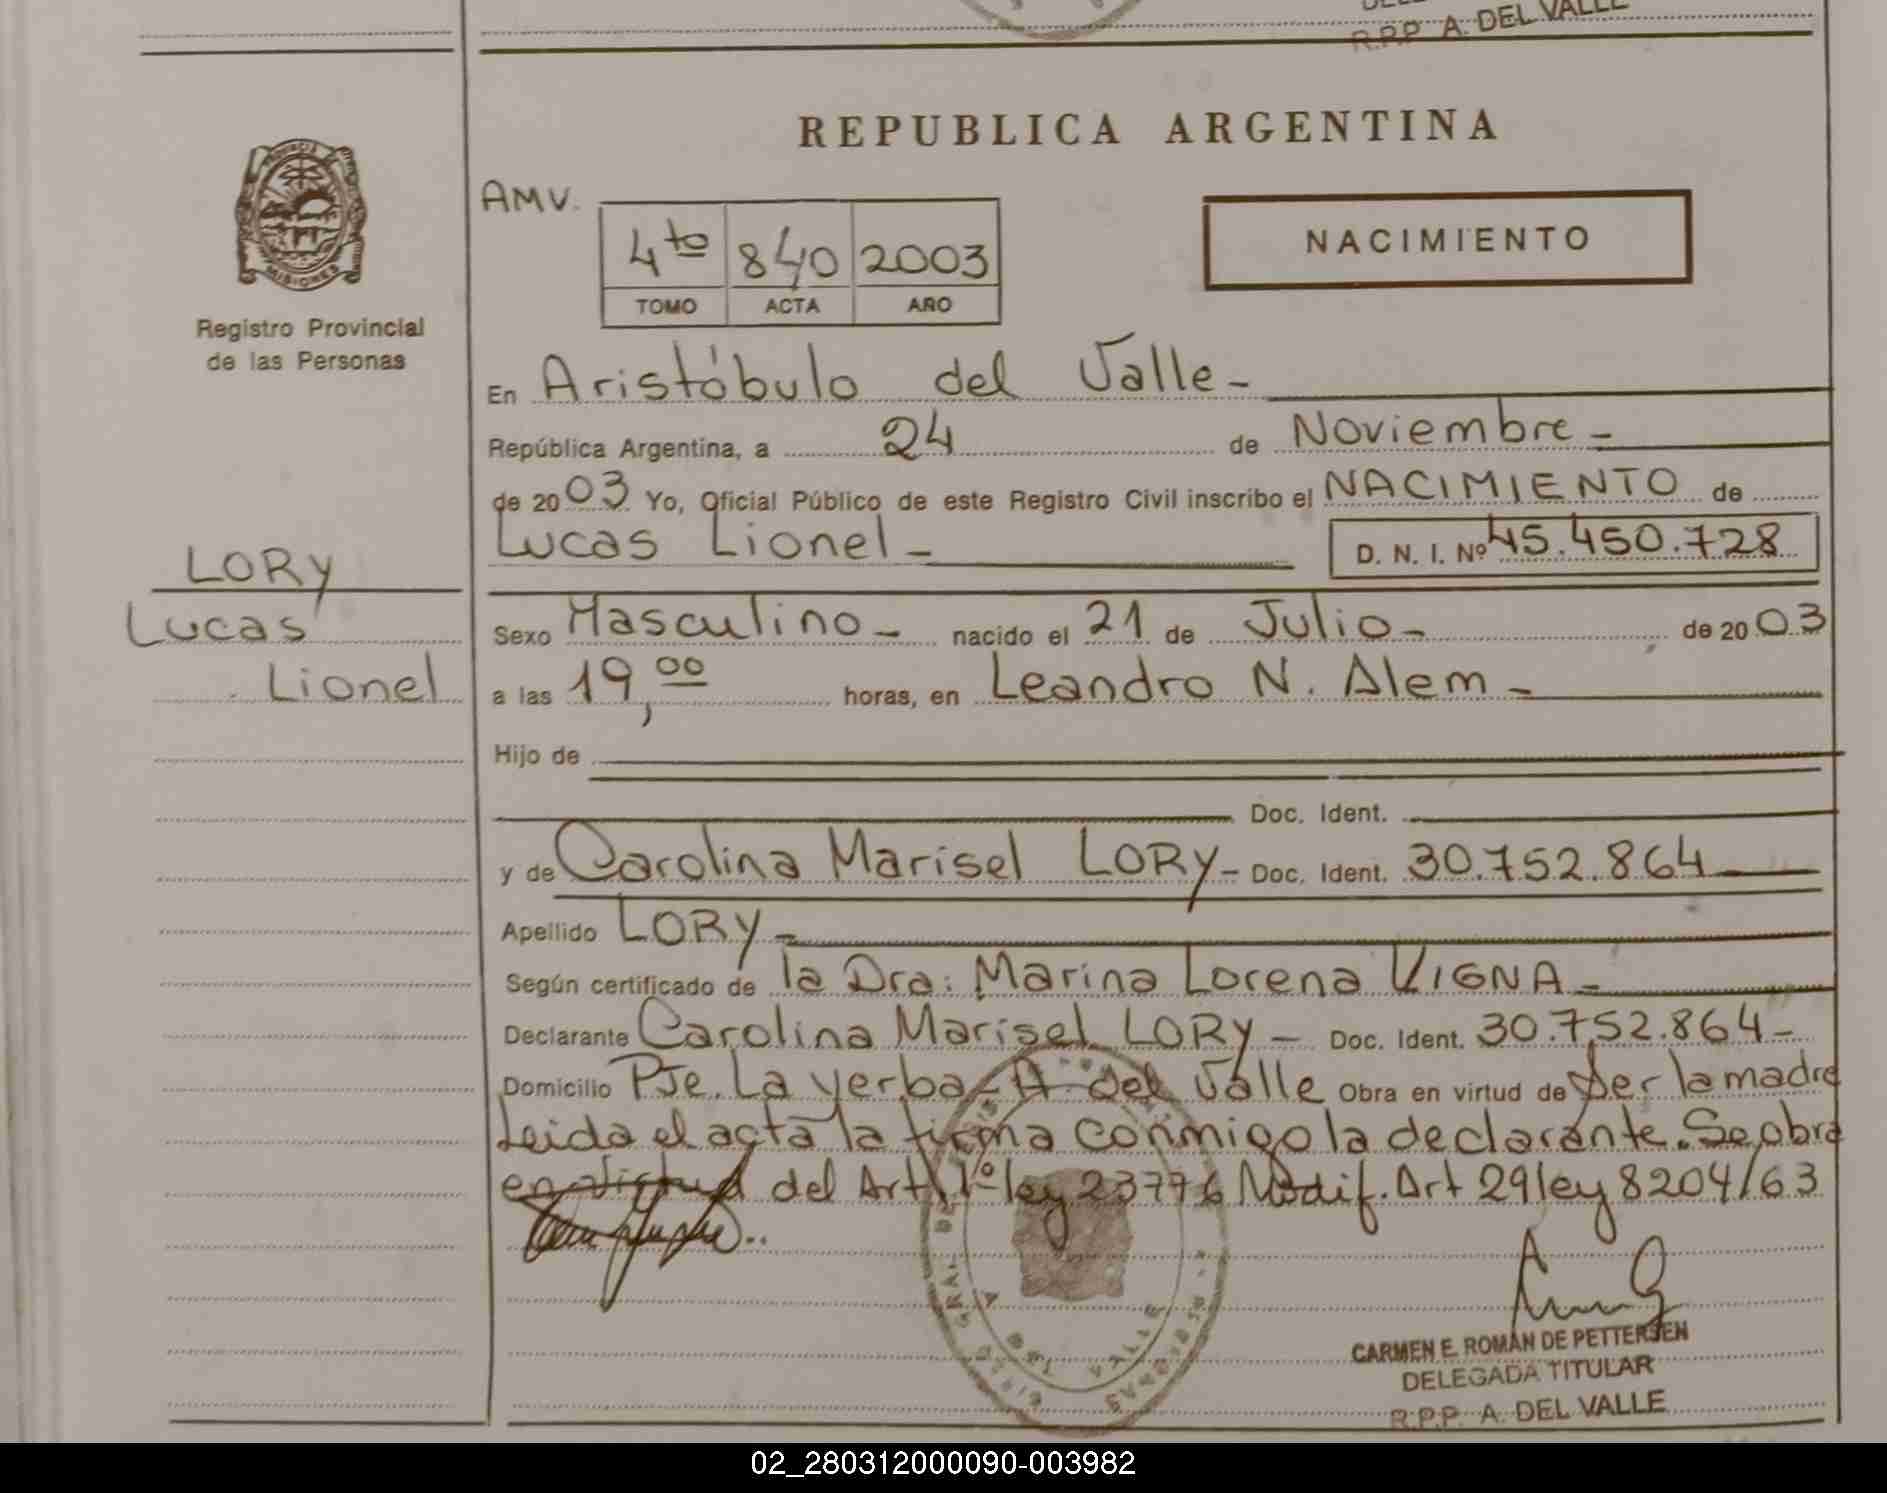 R.P.P A. DEL VALLE
REPUBLICA ARGENTINA
PROVINCIA DE
MISIONES
Registro Provincial
de las Personas
AMV.
4to 840 2003
TOMO ACTA AÑO
NACIMIENTO
En Aristóbulo del Valle-
República Argentina, a 24 de Noviembre-
de 2003 Yo, Oficial Público de este Registro Civil inscribo el NACIMIENTO de
Lucas Lionel- D. N. I. Nº 45.450.728
LORY
Lucas
Lionel
Sexo Masculino- nacido el 21 de Julio- de 2003
a las 19,00 horas, en Leandro N. Alem-
Hijo de
Doc. Ident.
y de Carolina Marisel LORY- Doc. Ident. 30.752.864
Apellido LORY-
Según certificado de la Dra: Marina Lorena VIGNA-
Declarante Carolina Marisel LORY- Doc. Ident. 30.752.864-
Domicilio Pje. La yerba- A. del Valle Obra en virtud de Ser la madre
Leida el acta la firma conmigo la declarante. Se obra
en virtud del Art 1º ley 23776 Modif. Art 29 ley 8204/63
A DEL VALLE
CARMEN E. ROMAN DE PETTERSEN
DELEGADA TITULAR
R.P.P. A. DEL VALLE
02_280312000090-003982